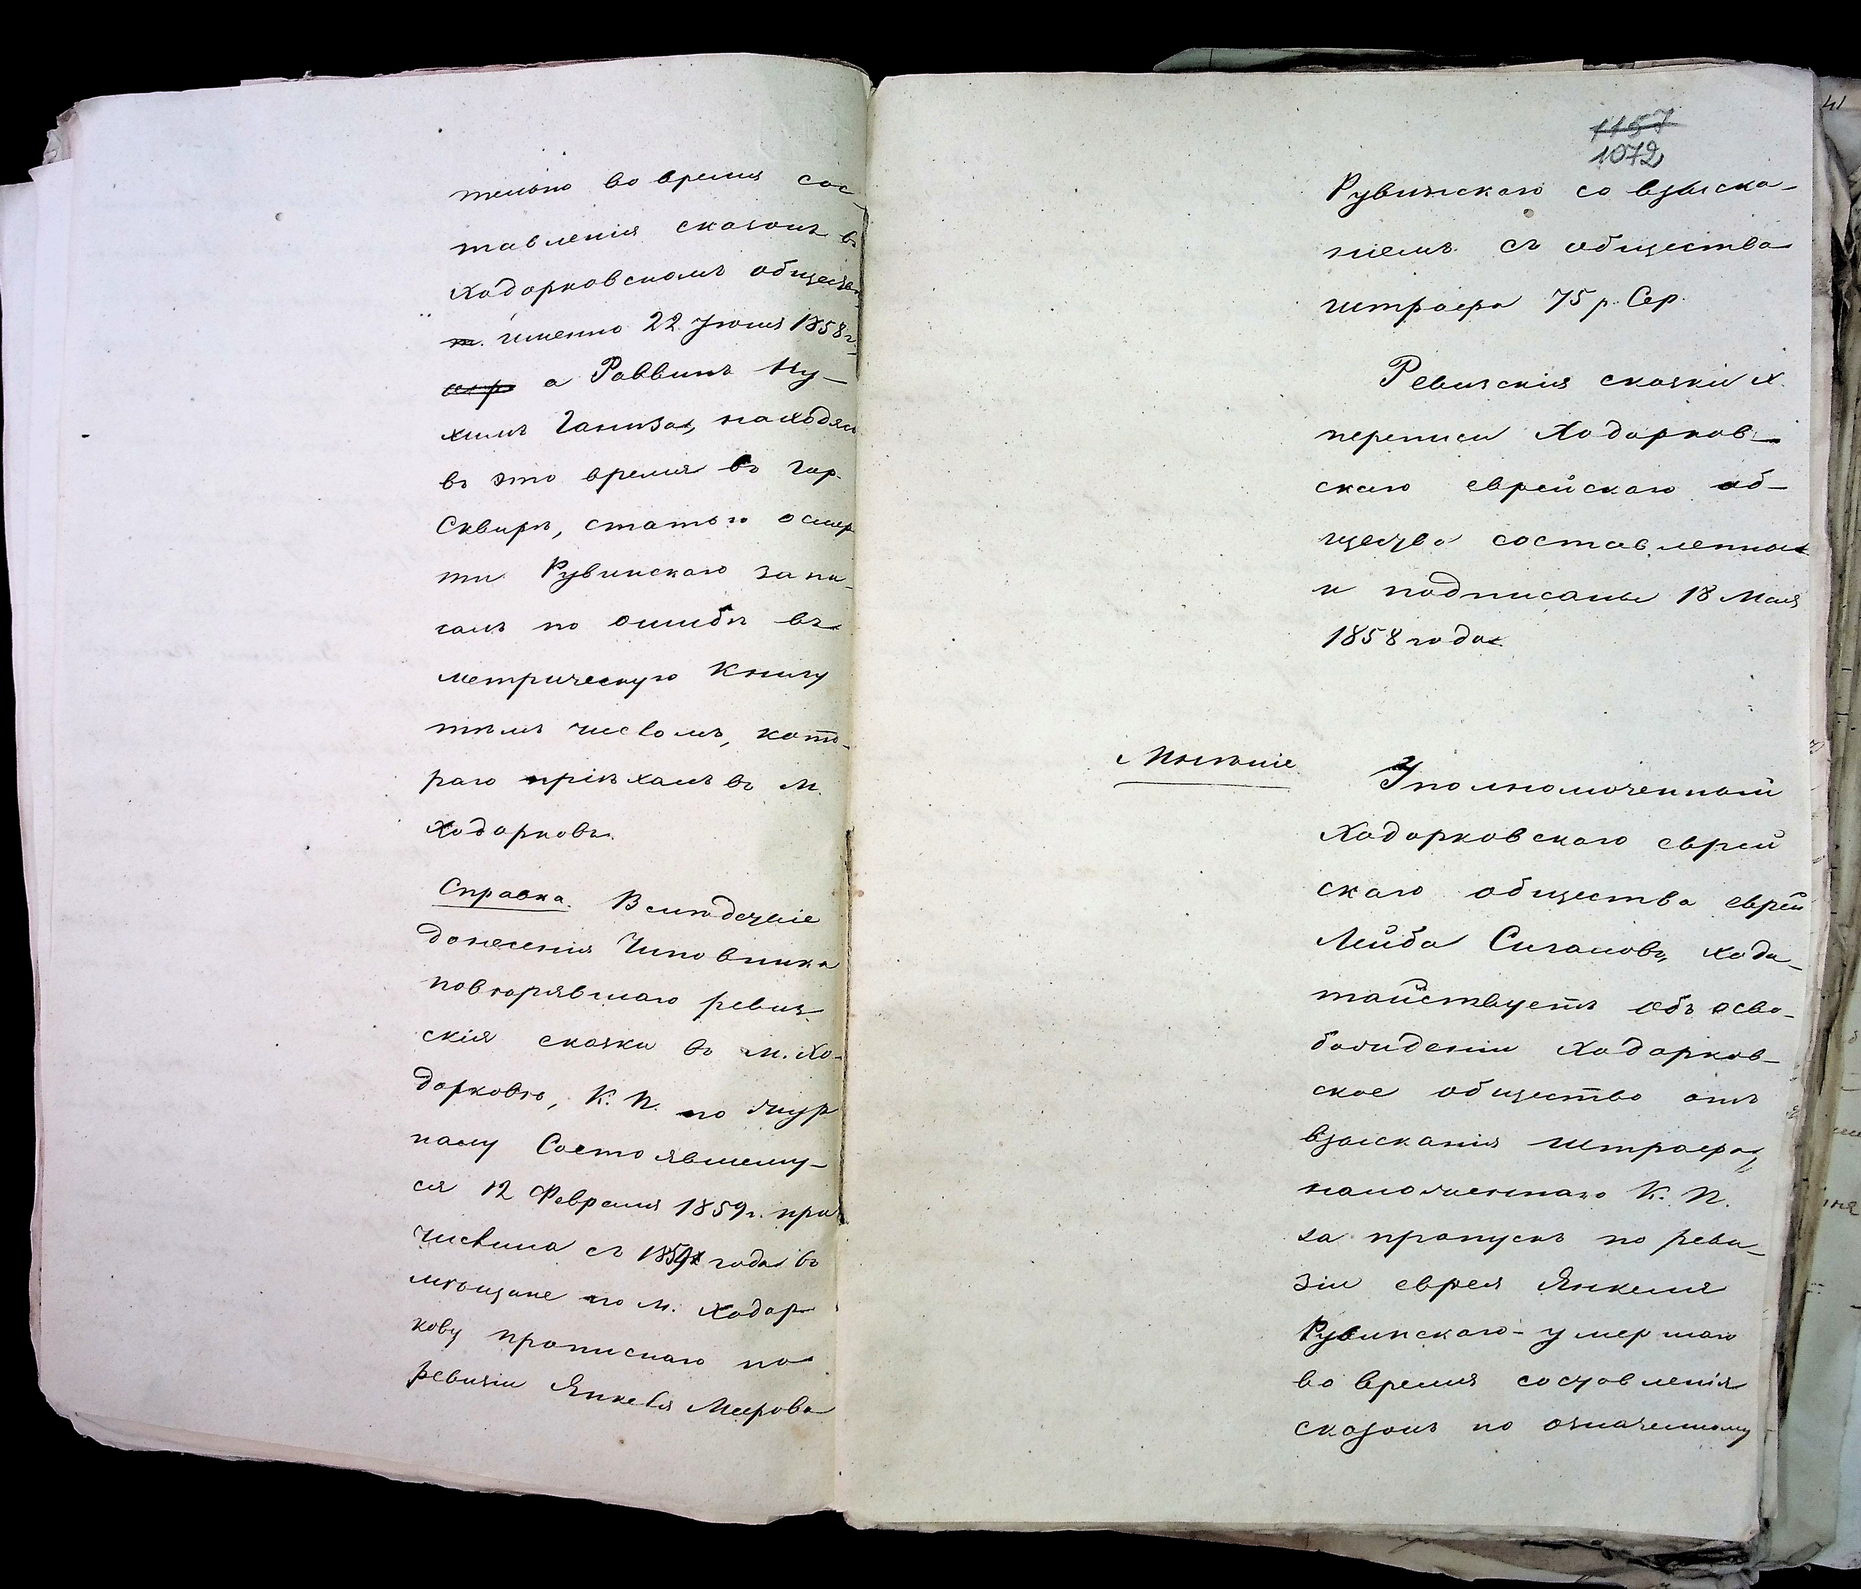 тельно во время сос-
тавленія сказокъ въ
Ходорковскомъ обществѣ
т. именно 22 Іюня 1858 г.,
а Раввинъ Ну-
химъ Ганза, находясь
въ это время въ гор.
Сквирѣ, статью о смер
ти Рувинскаго запи-
салъ по ошибкѣ въ
метрическую книгу
тѣмъ числомъ, кото-
раго пріѣхалъ въ м.
Ходорковъ.
Справка. Вслѣдствіе
донесенія Чиновника
повторявшаго ревиз-
скія сказки въ м. Хо-
дорковѣ, К. П. по жур
налу Состоявшему-
ся 12 Февраля 1859 г. при
числила съ 1859 года въ
мѣщане по м. Ходор
кову прописнаго по
ревизіи Янкеля Меерова
1157
1072
Рувинскаго со взыска-
ніемъ съ общества
штрафа 75 р. Сер.
Ревизскія сказки X.
переписи Ходорков-
скаго еврейскаго об-
щества составлены
и подписаны 18 Мая
1858 года
Мнѣніе.
Уполномоченный
Ходорковскаго еврей
скаго общества еврей
Лейба Сигаловъ, хода-
тайствуетъ объ осво-
божденіи Ходорков-
ское общество отъ
взысканія штрафа,
наложеннаго К. П.
за пропускъ по реви-
зіи еврея Янкеля
Рувинскаго - умершаго
во время составленія
сказокъ по означенному